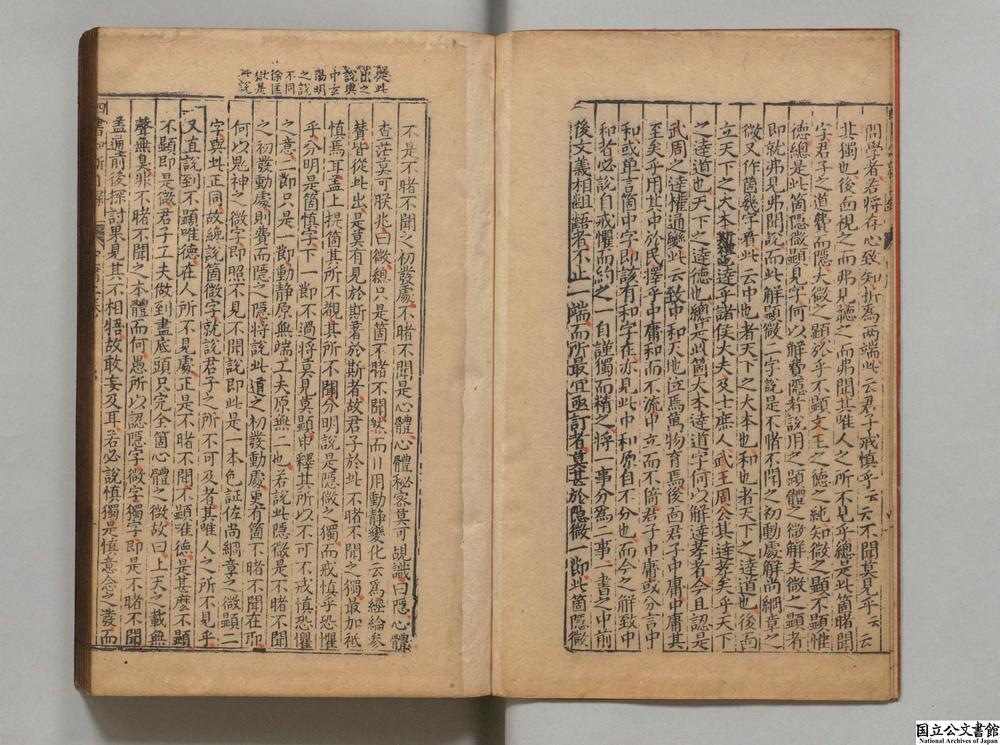 問學者若將存心致知折爲兩端此云君子戒慎乎云云不聞莫見乎云云
其獨也後面視之而弗見聽之而弗聞其唯人之所不見乎總是此箇睹聞
字君子之道費而隱夫微之顯於乎不顯文王之德之純知微之顯不顯惟
德總是此箇隱微顯見字何以解費隱者說用之顯體之微解夫微之顯者
即就弗見弗聞說而此解顯微二字說是不睹不聞之初動處解尚絅章之
微又作箇幾字看此云中也者天下之大本也和也者天下之達道也後面
立天下之大本達乎諸侯大夫及士庶人武王周公其達孝矣乎天下
之達道也天下之達德也總是此箇大本達道字何以解達孝者今且認是
武周之達權通變此云致中和天地位焉萬物育焉後面君子中庸中庸其
至矣乎用其中於民擇乎中庸和而不流中立而不倚君子中庸或分言中
和或單言箇中字即該有和字在亦見此中和原自不分也而今之解致中
和者必說自戒懼而約之自謹獨而精之將一事分爲二事一書之中前
後文義相齟齬者不止一端而所最宜亟訂者莫甚於隱微一節此箇隱微
不是不睹不聞之初發處不睹不聞是心體心體秘密莫可覘識曰隱心體
查茫莫可朕兆曰微總只是箇不睹不聞然而日用動靜變化云爲經綸參
贊皆從此出是莫有見於斯著於斯者故君子於此不睹不聞之獨最加祗
慎焉耳蓋上提箇其所不睹其所不聞分明說是隱微之獨而戒慎乎恐懼
乎分明是箇慎字下一節不過將莫見莫顯申釋其所以不可不戒慎恐懼
之意二節只是一節動靜原無端工夫原無二也若說此隱微是不睹不聞
之初發動處則費而隱之隱將說此道之初發動處更有箇不睹不聞在即
何以鬼神之微字即照不見不聞說即此是一本色証佐尚絅章之微顯二
字與此正同故纔說箇微字就說君子之所不可及者其唯人之所不見乎
又直說到不顯唯德在人所不見處正是不睹不聞不顯唯德是甚麼不顯
不顯即是微君子工夫做到盡底頭只完全箇心體之微故曰上天之載無
聲無臭非不睹不聞之本體而何愚所以認隱字微字獨字即是不睹不聞
蓋遍前後探討果見其不相牾故敢妄及耳若必說慎獨是慎意念之發而
從此
出之
說與
中玄
陽明
之說
不同
徐匡
嶽是
此說
国立公文書館
National Archives of Japan